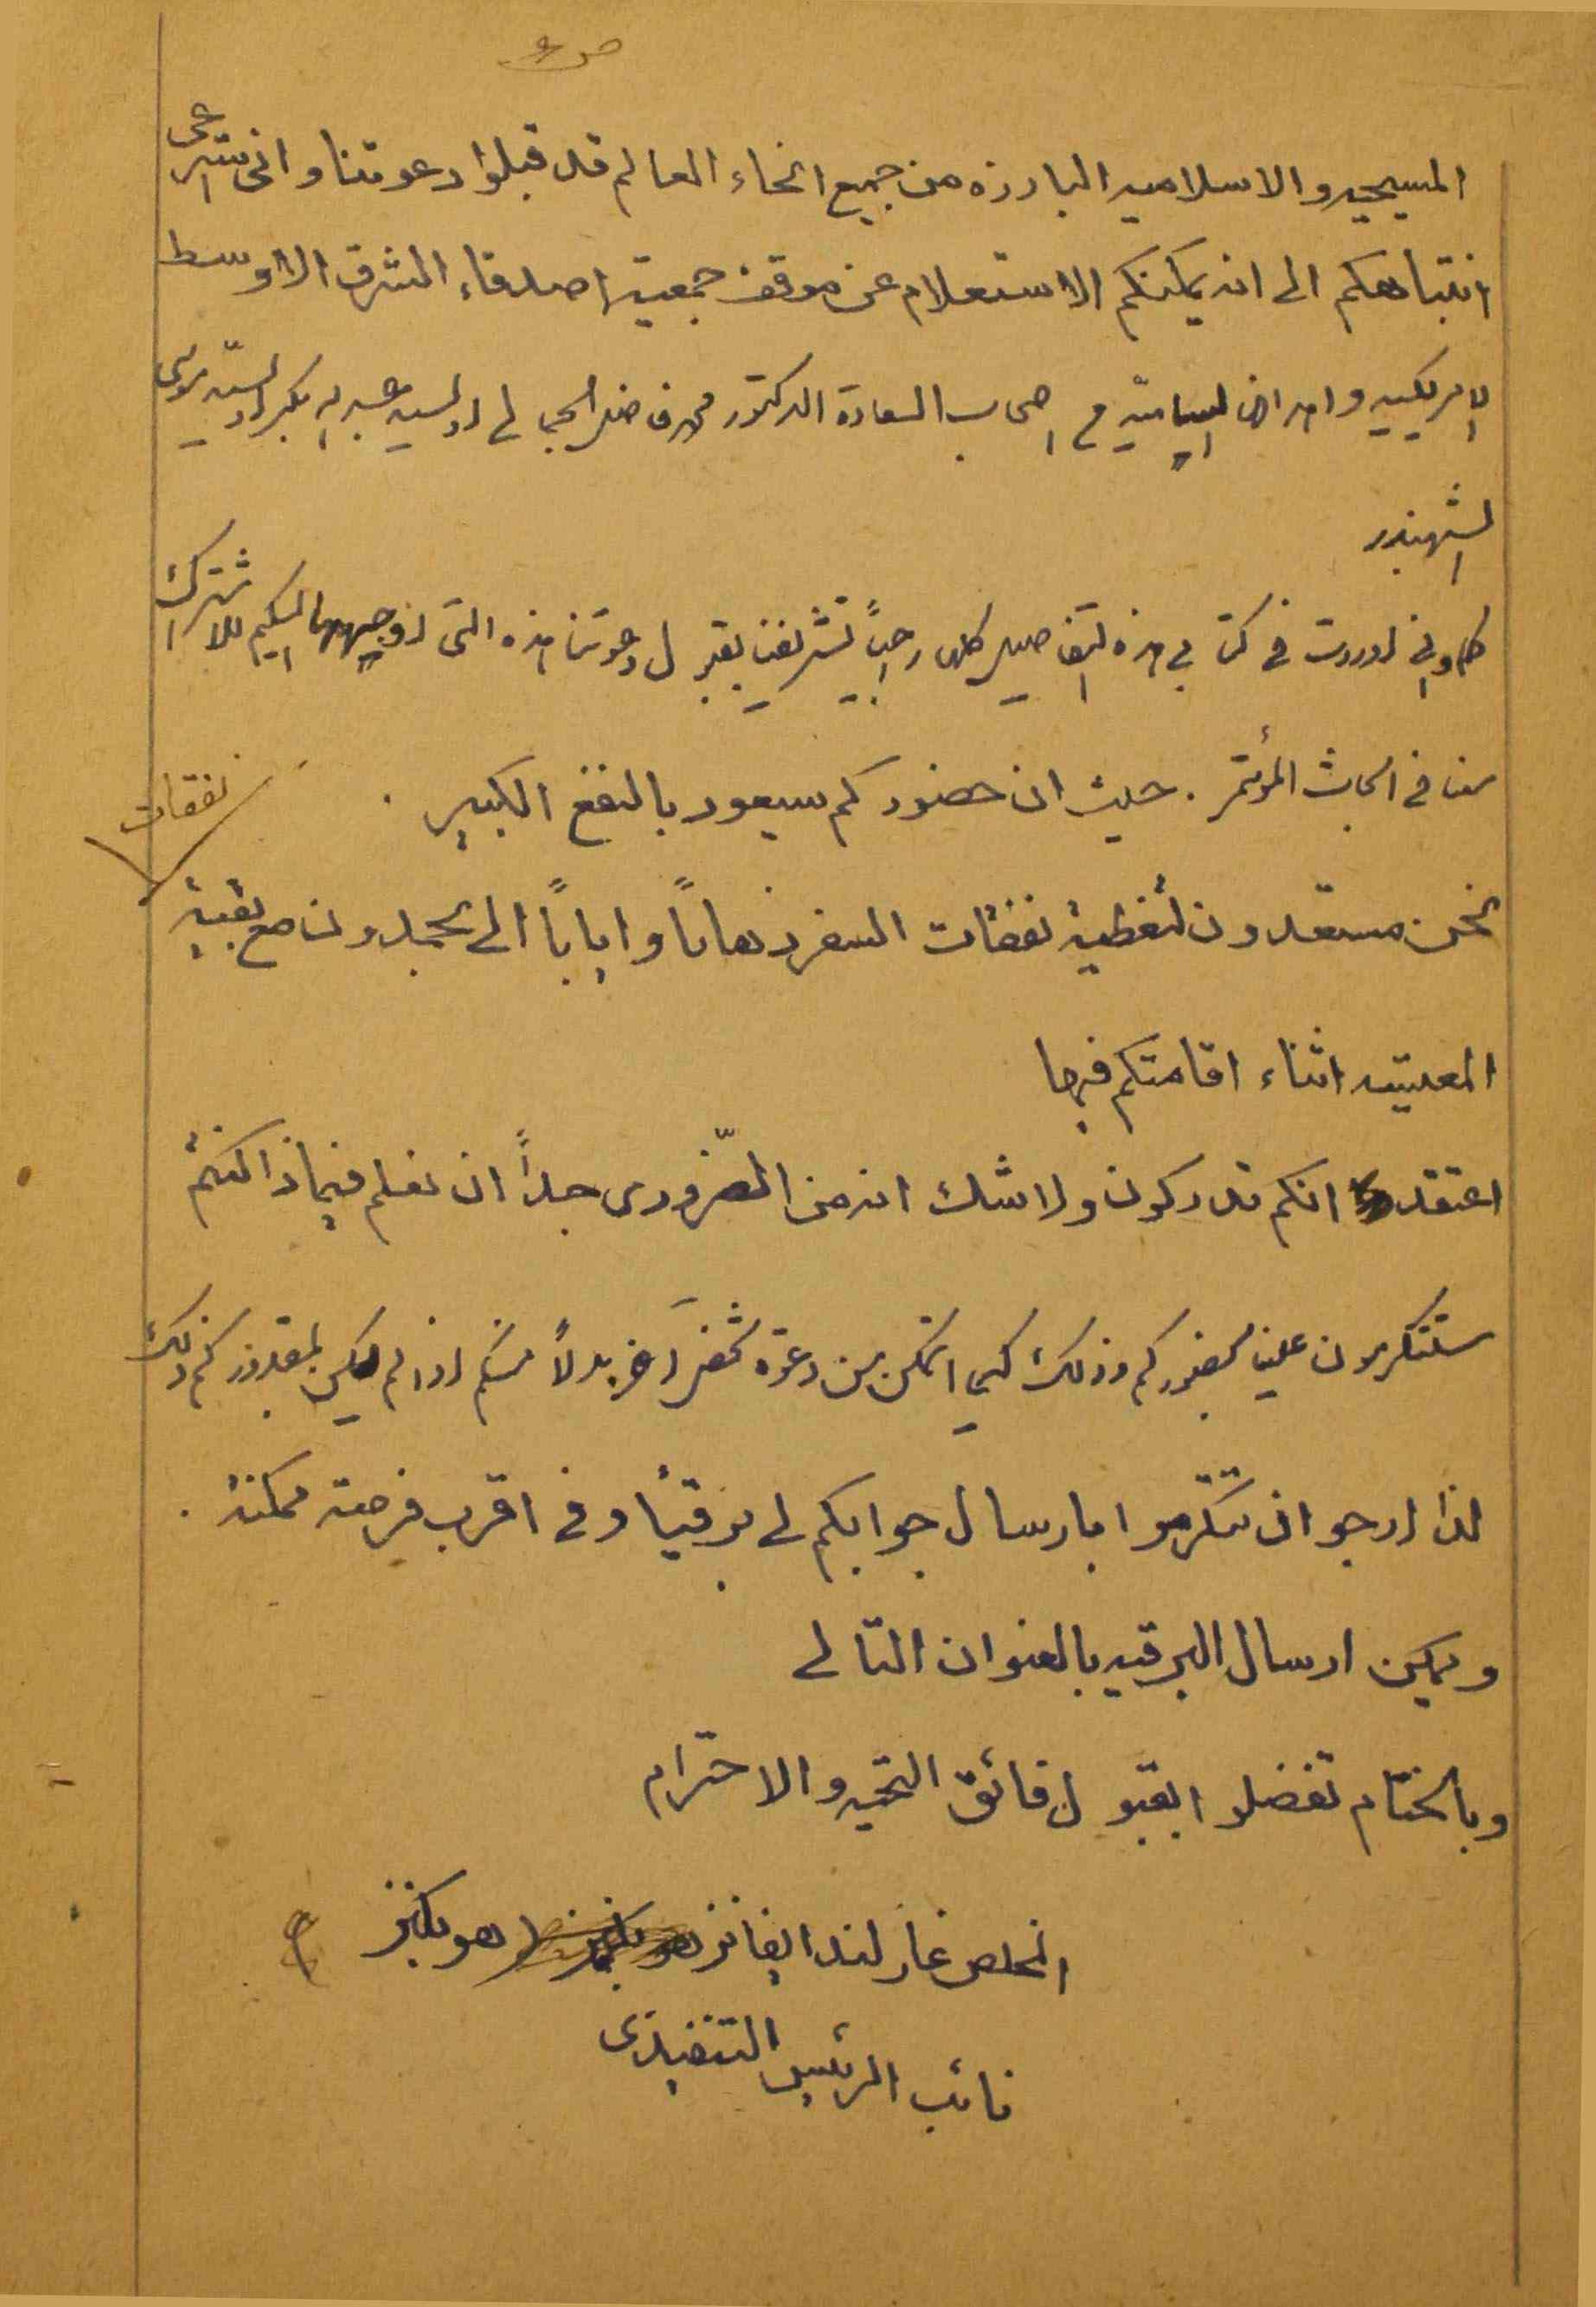 ص ٤
المسيحيه والاسلاميه البارزه من جميع انحاء العالم قد قبلوا دعوتنا وانى استرعى
انتباهكم الى انه يمكنكم الاستعلام عن موقف جمعية اصدقاء الشرق الاوسط
الامريكيه واهدافها السياسيّه من اصحاب السعادة الدكتور محمد فاضل الجمالي او السيد
الشهبندر
كما وانى اوردت فى كتابي هذه التفاصيل كلها راجياً تشريفنا بقبول دعوتنا هذه التى اوجهها اليكم للاشتراك
معنا فى ابحاث المؤتمر . حيث ان حضوركم سيعود بالنفع الكبير .
نفقات
نحن مستعدون لتغطية نفقات السفر ذهاباً واياباً الى بحمدون مع بقية
المعيشه اثناء اقامتكم فيها
اعتقد انكم تدركون ولا شك انه من الضّرورى جداً ان نعلم فيما اذا كنتم
ستتكرمون علينا بحضوركم وذلك كي اتمكن من دعوة شخص آخر بدلاً منكم اذا لم يكن بمقدوركم ذلك
لذا ارجو ان تتكّرموا بارسال جوابكم لى برقياً وفى اقرب فرصة ممكنة .
ويمكن ارسال البرقيه بالعنوان التالى
وبالختام تفضلوا بقبول فائق التحيه والاحترام
المخلص غارلند ايفانز هوبكنز
نائب الرئيس التنفيذى